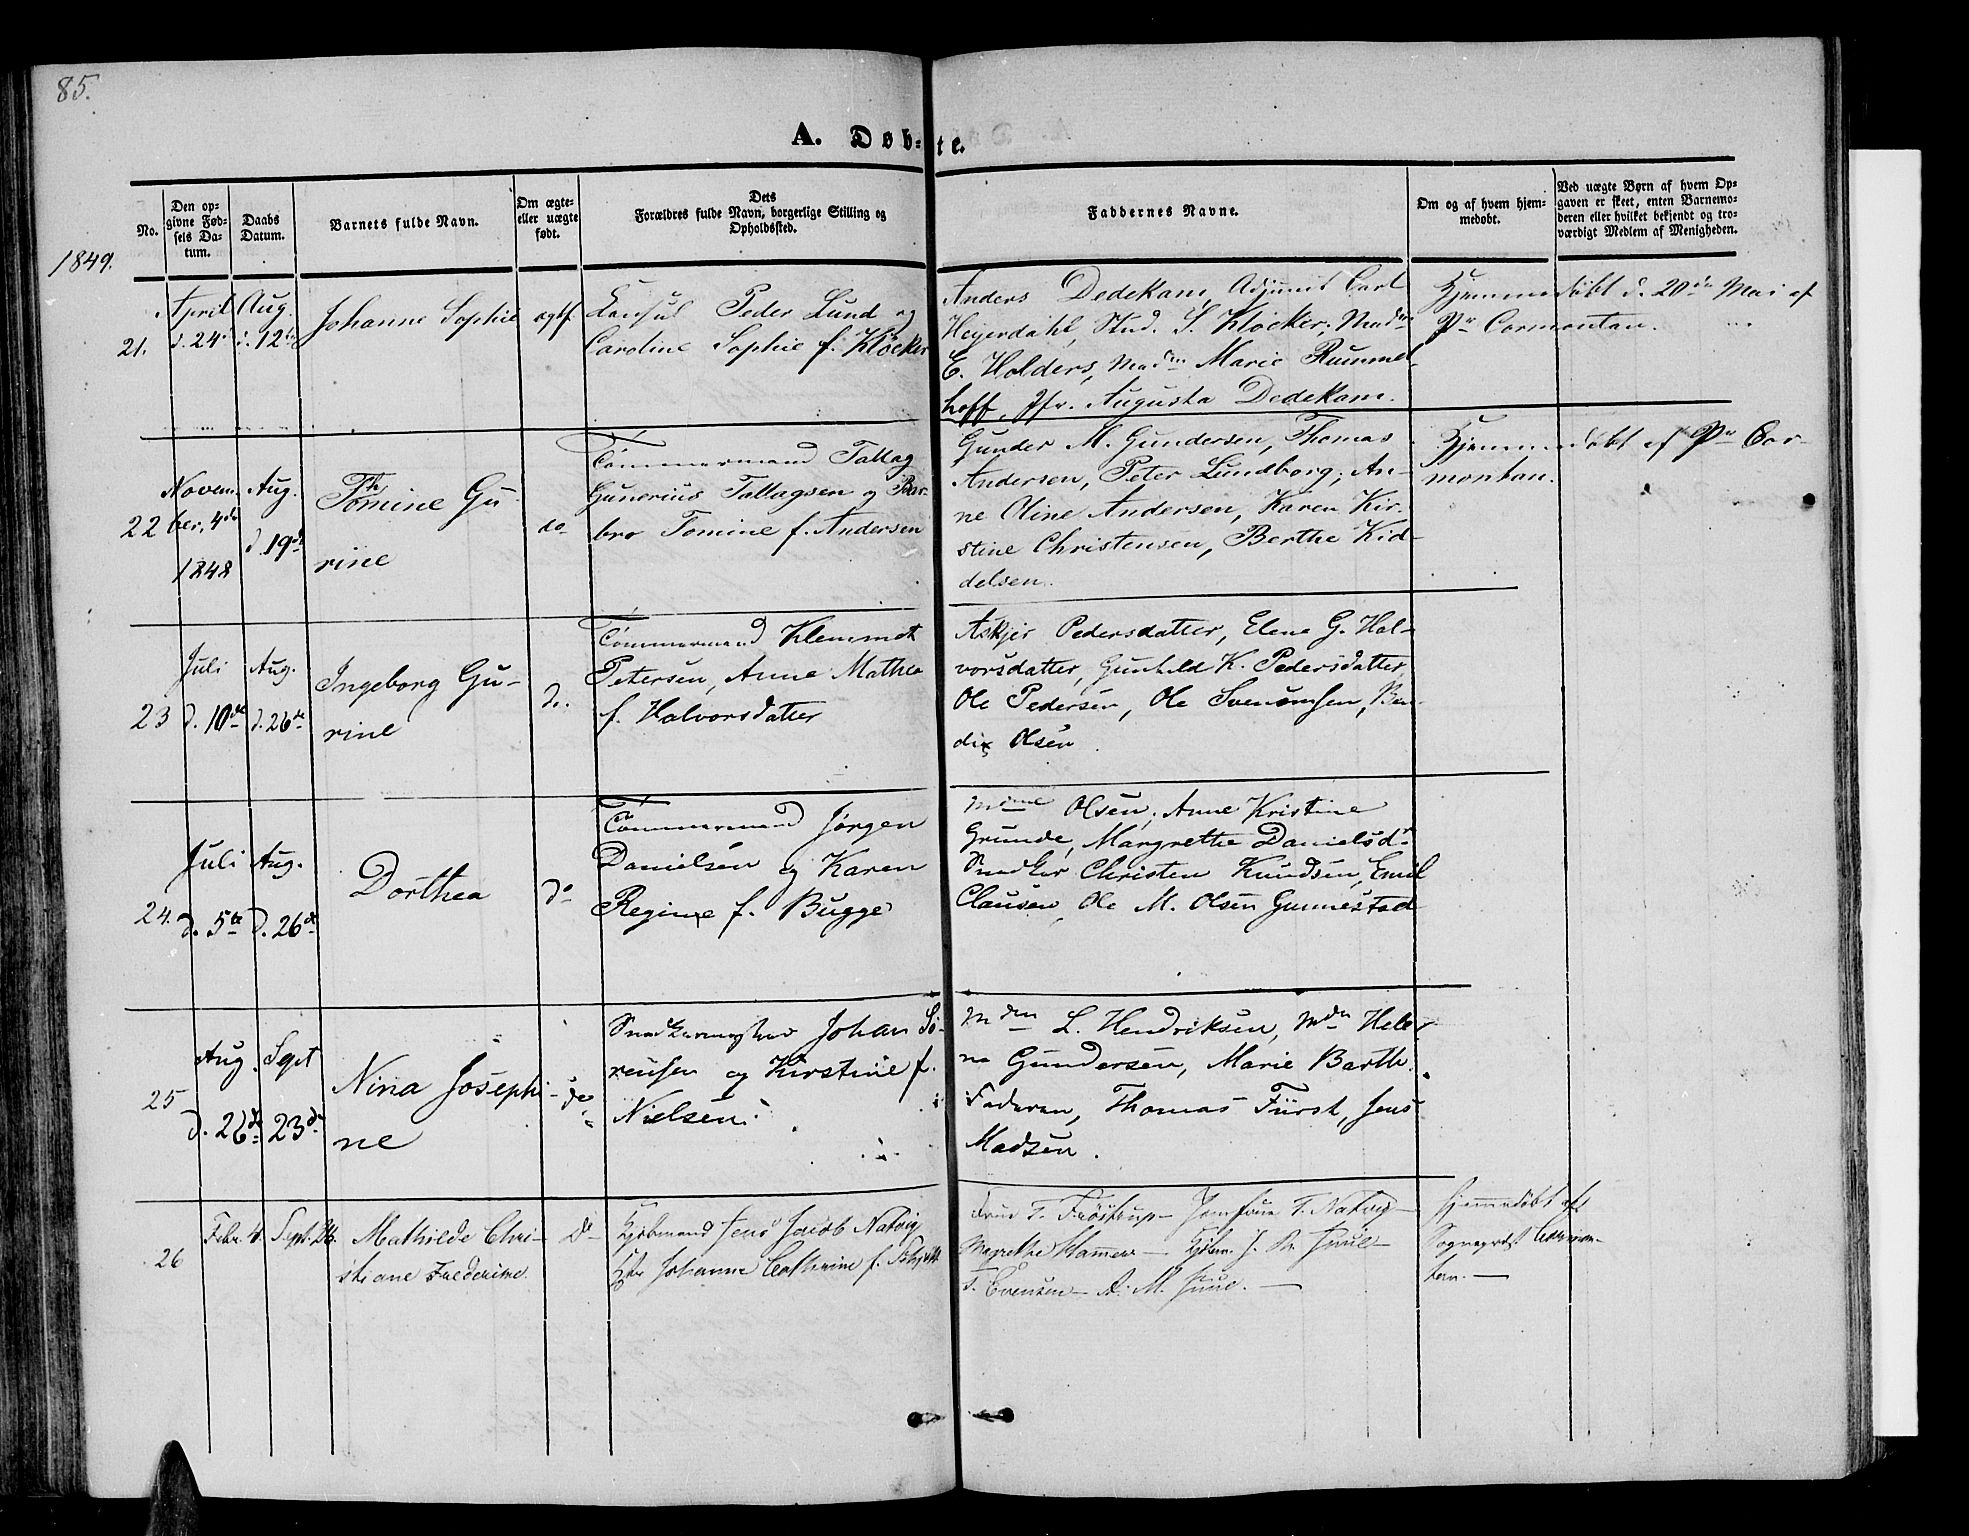 85.
A. Døb-te.
No.
Den op-
givne Fød-
sels Da-
tum.
Daabs
Datum.
Barnets fulde Navn.
Om ægte
eller uægte
født.
Dets
Forældres fulde Navn, borgerlige Stilling og
Opholdssted.
Faddernes Navne.
Om og af hvem hjem-
medøbt.
Ved uægte Børn af hvem Op-
gaven er skeet, enten Barnemo-
deren eller hvilket bekjendt og tro-
værdigt Medlem af Menigheden.
1849.
21.
April
d. 24
Aug.
d. 12te
Johanne Sophie
ægtf
Consul Peder Lund og
Caroline Sophie f. Kløcker
Anders Dedekam, Adjunct Carl
Heyerdahl, Stud. S. Kløcker, Mad
E. Holders, Mad Marie Rummel-
hoff, Jfr. Augusta Dedekam.
Hjemmedøbt d. 20de Mai af
Pr Cormontan.
22
Novem
ber, 4de
1848
Aug.
d. 19de
Thomine Gu
rine
do
Tømmermand Tallag
Gunerius Tallagsen og Bar-
bro Tomine f. Andersen
Gunder M. Gundersen, Thomas
Andersen, Peter Lundborg, An-
ne Oline Andersen, Karen Kir-
stine Christensen, Berthe Kid-
delsen.
Hjemmedøbt af Pr Cor-
montan.
23
Juli
d. 10de
Aug.
d. 26de
Ingeborg Gu-
rine
do.
Tømmermand Klemmet
Petersen, Anne Mathea
f. Halvorsdatter
Askjer Pedersdatter, Elene G. Hal-
vorsdatter, Gunhild K. Pedersdatter,
Ole Pedersen, Ole Svenumsen, Ben-
dix Olsen.
24.
Juli
d. 5te
Aug.
d. 26de
Dorthea
do
Tømmermand Jørgen
Danielsen og Karen
Regine f. Bugge
Mdme Olsen, Anne Kristine
Grunde, Margrethe Danielsdr
Snedker Christen Knudsen, Emil
Clausen, Ole M. Olsen Gunnestad
25
Aug.
d. 26de
Sept
23de
Nina Josephi-
ne
do
Snedkermester Johan Sø-
rensen og Kirstine f.
Nielsen.
Mdm L. Hendriksen, Mdm Hele-
na Gundersen, Marie Barth.
Faderen, Thomas Fürst, Jens
Madsen.
26
Febr. 4.
Sept. 24.
Mathilde Chri-
stiane Frederike
do
Kjøbmand Jens Jacob Natvig
Johanne Cathrine f.
Frue T. Frøstrup — Jomfrue T. Natvig —
Magrethe Hammer — Kjøbm. J. Juuel —
T. Evensen — A. M. Juuel. —
Hjemmedøbt af
Sognepræst Cormon-
tan. —